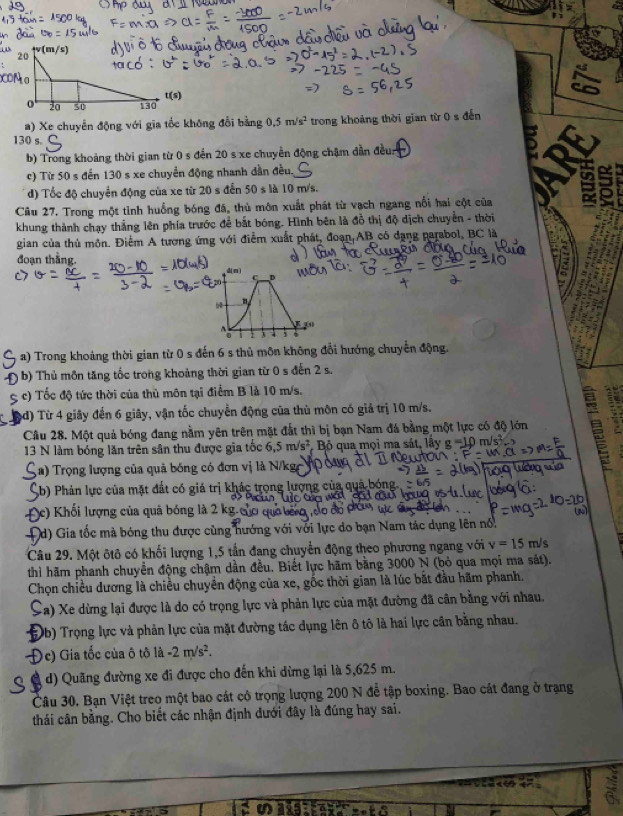 29
1,5 tấn = 1500 kg
F = m.a => a = F/m = -3000/1500 = -2 m/s²
v₀ = 15 m/s
d) Vì ô tô chuyển động chậm dần đều và dừng lại.
ta có: v² - v₀² = 2.a.s => 0² - 15² = 2.(-2).s
=> -225 = -4s
=> s = 56,25
v(m/s)
20
10
0 20 50 130 t(s)
a) Xe chuyển động với gia tốc không đổi bằng 0,5 m/s² trong khoảng thời gian từ 0 s đến
130 s. S
b) Trong khoảng thời gian từ 0 s đến 20 s xe chuyển động chậm dần đều. Đ
c) Từ 50 s đến 130 s xe chuyển động nhanh dần đều. S
d) Tốc độ chuyển động của xe từ 20 s đến 50 s là 10 m/s.
Câu 27. Trong một tình huống bóng đá, thủ môn xuất phát từ vạch ngang nối hai cột của
khung thành chạy thẳng lên phía trước để bắt bóng. Hình bên là đồ thị độ dịch chuyển - thời
gian của thủ môn. Điểm A tương ứng với điểm xuất phát, đoạn AB có dạng parabol, BC là
đoạn thẳng.
c) v = /t = 20-10/3-2 = 10(m/s)
d) Vận tốc chuyển động của thủ
môn là: v = /t = 0-20/2 = -10
d(m)
C D
B
A
0 1 2 3 4 5 6
S a) Trong khoảng thời gian từ 0 s đến 6 s thủ môn không đổi hướng chuyển động.
Đ b) Thủ môn tăng tốc trong khoảng thời gian từ 0 s đến 2 s.
S c) Tốc độ tức thời của thủ môn tại điểm B là 10 m/s.
S d) Từ 4 giây đến 6 giây, vận tốc chuyển động của thủ môn có giá trị 10 m/s.
Câu 28. Một quả bóng đang nằm yên trên mặt đất thì bị bạn Nam đá bằng một lực có độ lớn
13 N làm bóng lăn trên sân thu được gia tốc 6,5 m/s². Bỏ qua mọi ma sát, lấy g = 10 m/s².
Áp dụng đl II Newton: F = m.a => m = F/a
S a) Trọng lượng của quả bóng có đơn vị là N/kg.
=> 13/6,5 = 2(kg) Trọng lượng của
S b) Phản lực của mặt đất có giá trị khác trọng lượng của quả bóng.
bóng là:
P = mg = 2.10 = 20
(N)
Đ c) Khối lượng của quả bóng là 2 kg.
Đ d) Gia tốc mà bóng thu được cùng hướng với với lực do bạn Nam tác dụng lên nó.
Câu 29. Một ôtô có khối lượng 1,5 tấn đang chuyển động theo phương ngang với v = 15 m/s
thì hãm phanh chuyển động chậm dần đều. Biết lực hãm bằng 3000 N (bỏ qua mọi ma sát).
Chọn chiều dương là chiều chuyển động của xe, gốc thời gian là lúc bắt đầu hãm phanh.
S a) Xe dừng lại được là do có trọng lực và phản lực của mặt đường đã cân bằng với nhau.
Đ b) Trọng lực và phản lực của mặt đường tác dụng lên ô tô là hai lực cân bằng nhau.
Đ c) Gia tốc của ô tô là -2 m/s².
S d) Quãng đường xe đi được cho đến khi dừng lại là 5,625 m.
Câu 30. Bạn Việt treo một bao cát có trọng lượng 200 N để tập boxing. Bao cát đang ở trạng
thái cân bằng. Cho biết các nhận định dưới đây là đúng hay sai.
67
YOU
ARE
RUSH
YOUR